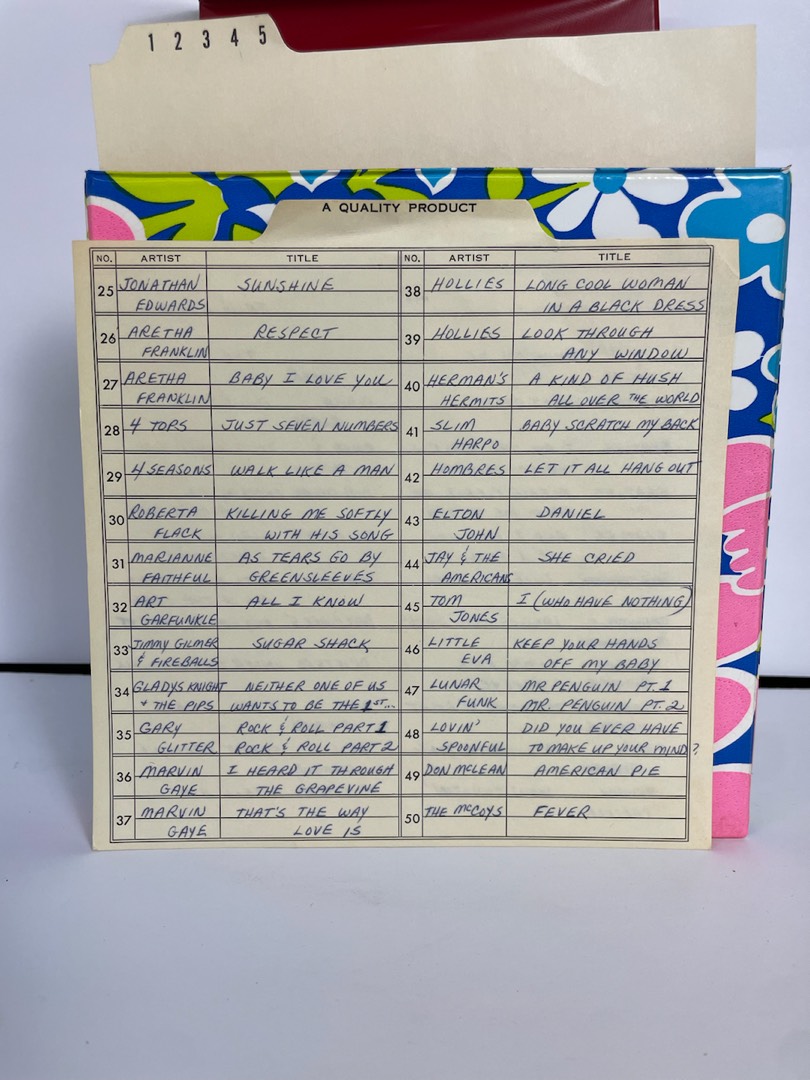 1 2 3 4 5
A QUALITY PRODUCT
NO. ARTIST TITLE
25 JONATHAN SUNSHINE
EDWARDS
26 ARETHA RESPECT
FRANKLIN
27 ARETHA BABY I LOVE YOU
FRANKLIN
28 4 TOPS JUST SEVEN NUMBERS
29 4 SEASONS WALK LIKE A MAN
30 ROBERTA KILLING ME SOFTLY
FLACK WITH HIS SONG
31 MARIANNE AS TEARS GO BY
FAITHFUL GREENSLEEVES
32 ART ALL I KNOW
GARFUNKLE
33 JIMMY GILMER SUGAR SHACK
& FIREBALLS
34 GLADYS KNIGHT NEITHER ONE OF US
+ THE PIPS WANTS TO BE THE 1ST...
35 GARY ROCK & ROLL PART 1
GLITTER ROCK & ROLL PART 2
36 MARVIN I HEARD IT THROUGH
GAYE THE GRAPEVINE
37 MARVIN THAT'S THE WAY
GAYE LOVE IS
NO. ARTIST TITLE
38 HOLLIES LONG COOL WOMAN
IN A BLACK DRESS
39 HOLLIES LOOK THROUGH
ANY WINDOW
40 HERMAN'S A KIND OF HUSH
HERMITS ALL OVER THE WORLD
41 SLIM BABY SCRATCH MY BACK
HARPO
42 HOMBRES LET IT ALL HANG OUT
43 ELTON DANIEL
JOHN
44 JAY & THE SHE CRIED
AMERICANS
45 TOM I (WHO HAVE NOTHING)
JONES
46 LITTLE KEEP YOUR HANDS
EVA OFF MY BABY
47 LUNAR MR PENGUIN PT. 1
FUNK MR. PENGUIN PT. 2
48 LOVIN' DID YOU EVER HAVE
SPOONFUL TO MAKE UP YOUR MIND?
49 DON MCLEAN AMERICAN PIE
50 THE McCOYS FEVER